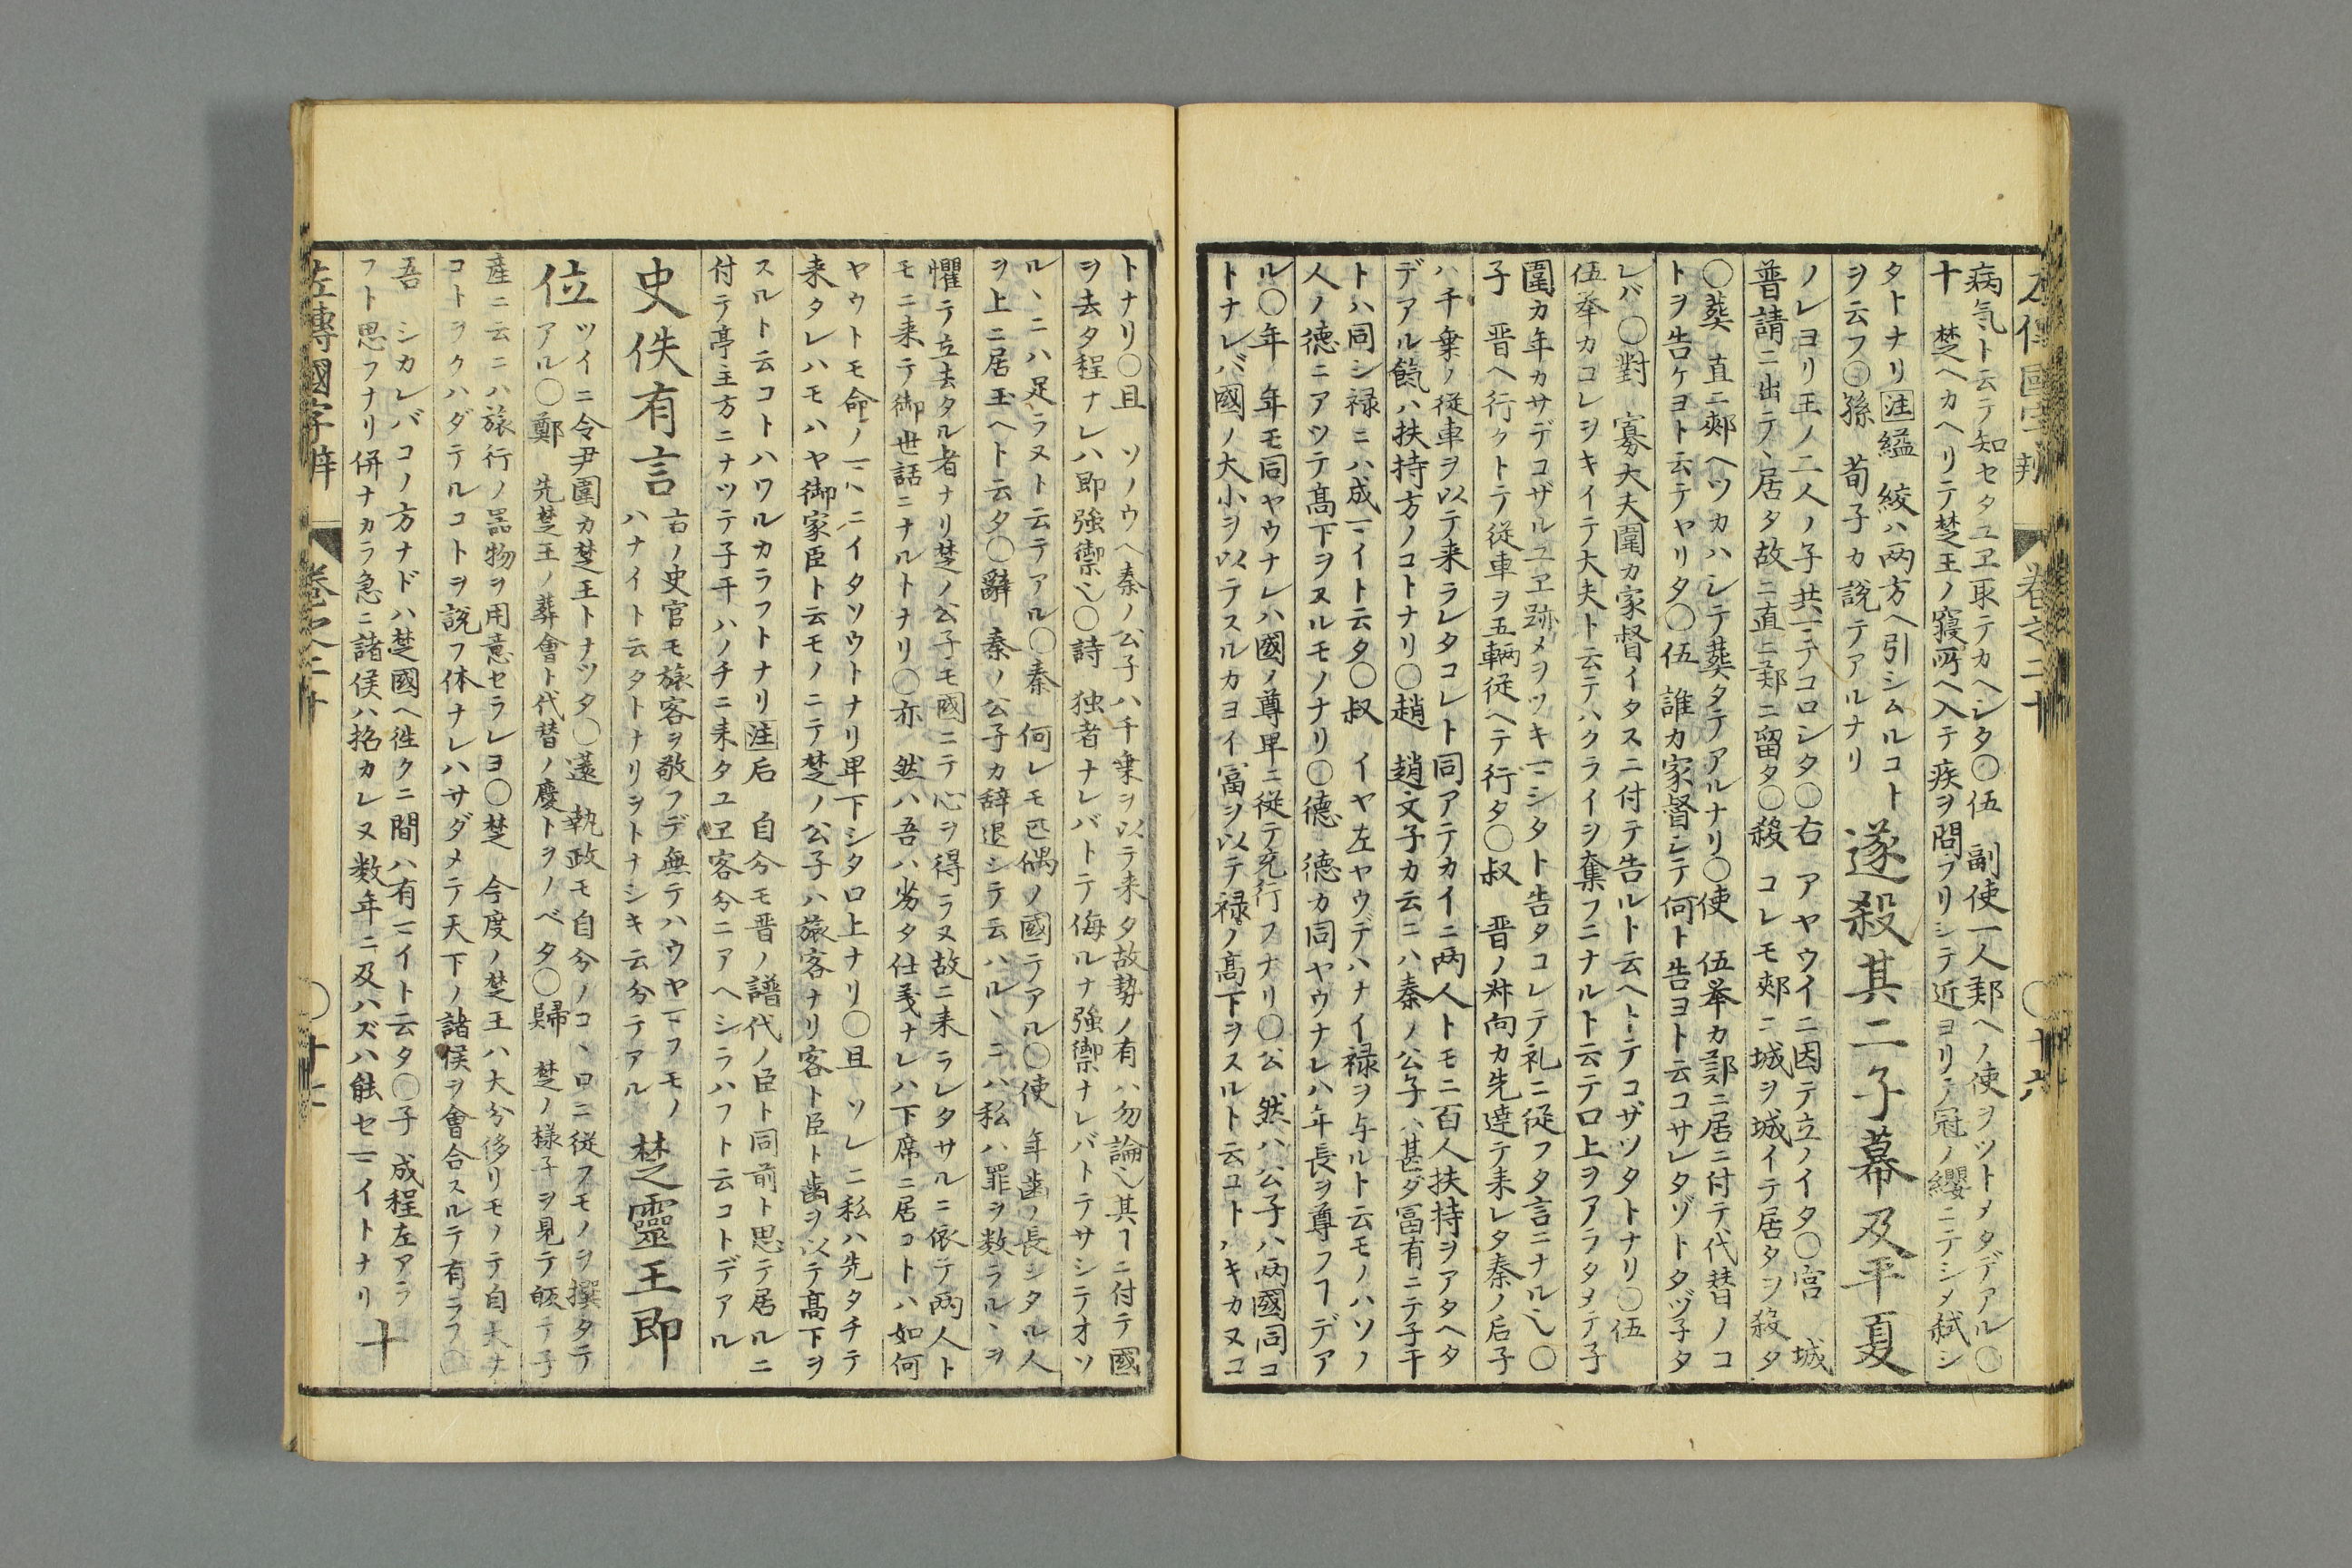 左傳國字辨 卷之二十 〇十六
病気ト云テ知セタユヱ取テカヘシタ〇伍 副使一人鄭ヘノ使ヲツトメタデアル〇
十 楚ヘカヘリテ楚王ノ寝所ヘ入テ疾ヲ問フリシテ近ヨリ冠ノ纓ニテシメ弑シ
タトナリ注縊 絞ハ両方ヘ引シムルコト
ヲ云フ〇孫 荀子カ説テアルナリ
遂殺其二子幕及平夏
ノレヨリ王ノ二人ノ子共マテコロシタ〇右 アヤウイニ因テ立ノイタ〇宮 城
普請ニ出テ居タ故ニ直ニ鄭ニ留タ〇殺 コレモ郟ニ城ヲ城イテ居タヲ殺タ
〇葬 直ニ郟ヘツカハシテ葬タテアルナリ〇使 伍挙カ鄭ニ居ニ付テ代替ノコ
トヲ告ケヨト云テヤリタ〇伍 誰カ家督シテ何ト告ヨト云コサレタゾトタヅ子タ
レバ〇對 寡大夫圍カ家督イタスニ付テ告ルト云ヘトテコザツタトナリ〇伍
伍挙カコレヲキイテ大夫ト云テハクライヲ奪フニナルト云テ口上ヲアラタメテ子
圍カ年カサデコザルユヱ跡メヲツキマシタト告タコレテ礼ニ従フタ言ニナル也〇
子 晋ヘ行クトテ従車ヲ五輌従ヘテ行タ〇叔 晋ノ叔向カ先達テ来レタ秦ノ后子
ハ千乗ノ従車ヲ以テ来ラレタコレト同アテカイニ両人トモニ百人扶持ヲアタヘタ
デアル餼ハ扶持方ノコトナリ〇趙 趙文子カ云ニハ秦ノ公子ハ甚ダ冨有ニテ子干
トハ同シ禄ニハ成マイト云タ〇叔 イヤ左ヤウデハナイ禄ヲ与ルト云モノハソノ
人ノ徳ニアツテ髙下ヲヌルモノナリ〇徳 徳カ同ヤウナレハ年長ヲ尊フヿデア
ル〇年 年モ同ヤウナレハ國ノ尊卑ニ従テ充行フナリ〇公 然ハ公子ハ両國同コ
トナレバ國ノ大小ヲ以テスルカヨイ冨ヲ以テ禄ノ髙下ヲスルト云ユトハキカヌコ
トナリ〇且 ソノウヘ秦ノ公子ハ千乗ヲ以テ来タ故勢ノ有ハ勿論也其ヿニ付テ國
ヲ去タ程ナレハ即強禦也〇詩 独者ナレバトテ侮ルナ強禦ナレバトテサシテオソ
ルヽニハ足ラヌト云テアル〇秦 何レモ匹偶ノ國テアル〇使 年歯ノ長シタル人
ヲ上ニ居玉ヘト云タ〇辭 秦ノ公子カ辞退シテ云ハルヽニハ私ハ罪ヲ数ラルヽヲ
懼テ立去タル者ナリ楚ノ公子モ國ニテ心ヲ得ラヌ故ニ来ラレタサルニ依テ両人ト
モニ来テ御世話ニナルトナリ〇亦 然ハ吾ハ劣タ仕義ナレハ下席ニ居コトハ如何
ヤウトモ命ノマヽニイタソウトナリ卑下シタ口上ナリ〇且 ソレニ私ハ先タチテ
来タレハモハヤ御家臣ト云モノニテ楚ノ公子ハ旅客ナリ客ト臣ト歯ヲ以テ髙下ヲ
スルト云コトハワルカラフトナリ注后 自分モ晋ノ譜代ノ臣ト同前ト思テ居ルニ
付テ亭主方ニナツテ子干ハノチニ来タユヱ客分ニアヘシラハフト云コトデアル
史佚有言
古ノ史官モ旅客ヲ敬フデ無テハウヤマフモノ
ハナイト云タトナリヲトナシキ云分テアル
楚靈王即
位
ツイニ令尹圍カ楚王トナツタ〇薳 執政モ自分ノコヽロニ従フモノヲ撰タテ
アル〇鄭 先楚王ノ葬會ト代替ノ慶トヲノベタ〇歸 楚ノ様子ヲ見テ皈テ子
産ニ云ニハ旅行ノ器物ヲ用意セラレヨ〇楚 今度ノ楚王ハ大分侈リモノテ自大ナ
コトヲクハダテルコトヲ説フ体ナレハサダメテ天下ノ諸侯ヲ會合スルテ有ラフ〇
吾 シカレバコノ方ナドハ楚國ヘ徃クニ間ハ有マイト云タ〇子 成程左アラ
フト思フナリ併ナカラ急ニ諸侯ハ招カレヌ数年ニ及ハズハ能セマイトナリ
十
左傳國字辨 卷之二十 〇十七